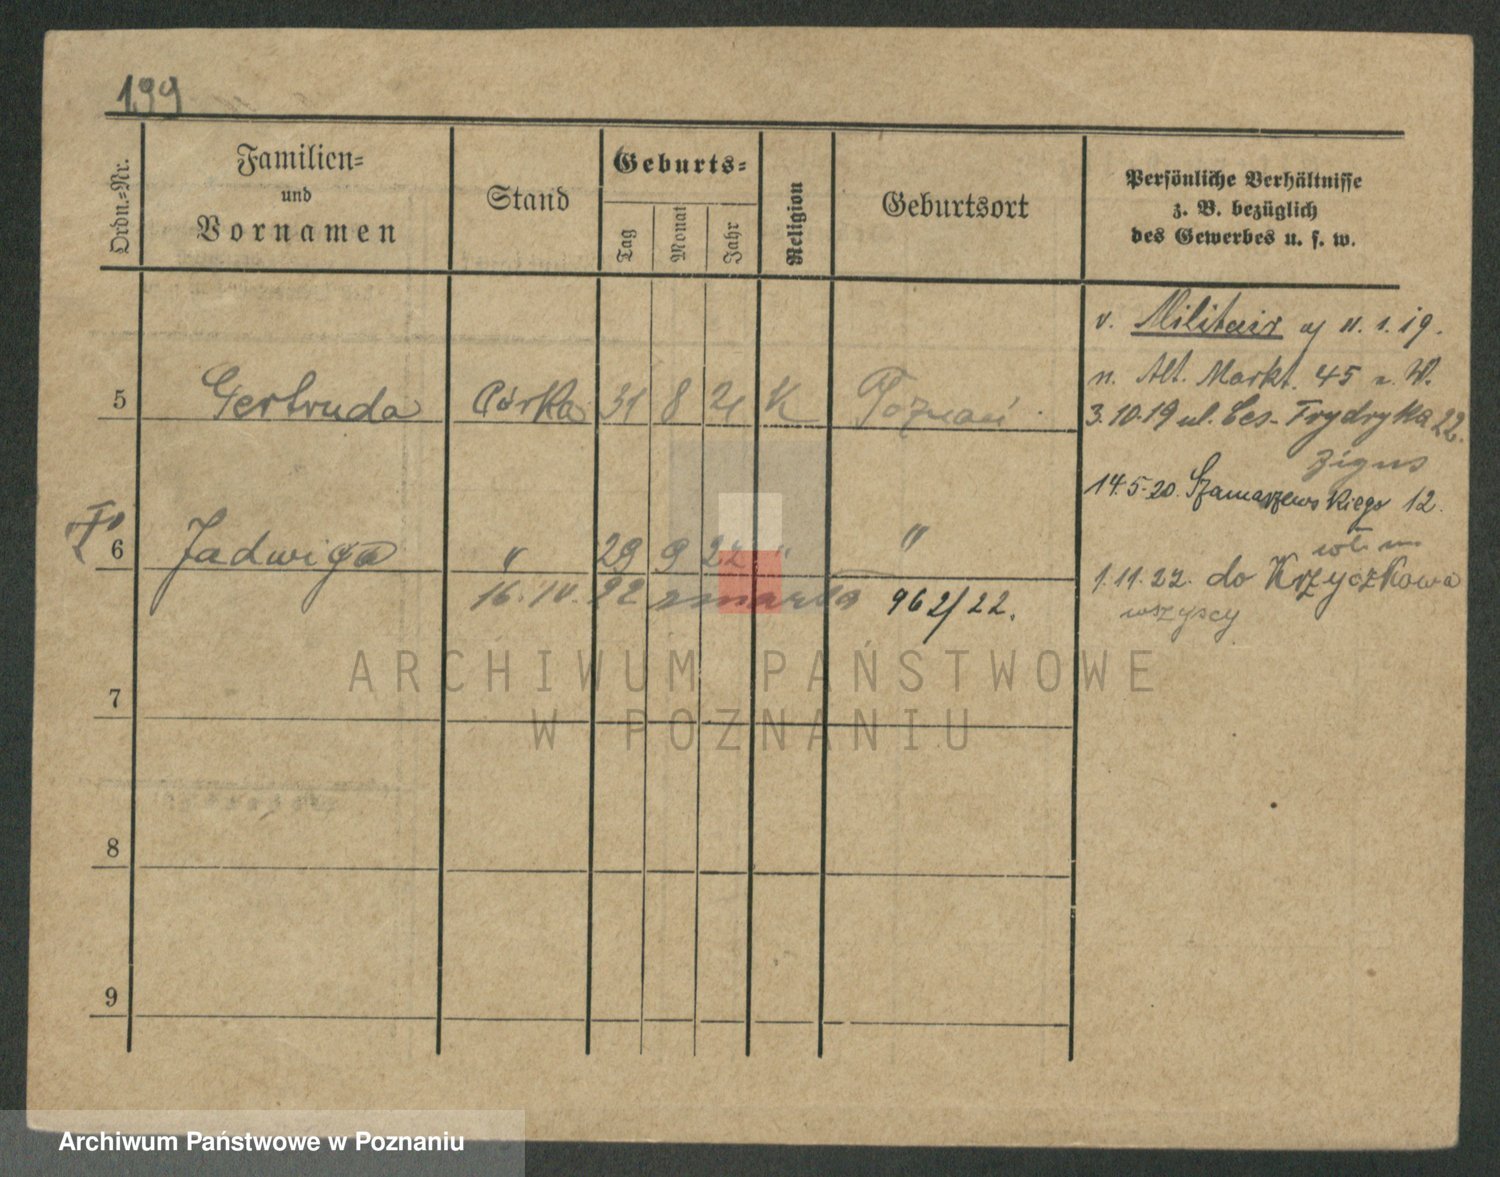 199
Ordn.-Nr.
Familien-
und
Vornamen
Stand
Geburts-
Tag
Monat
Jahr
Religion
Geburtsort
Persönliche Verhältnisse
z. B. bezüglich
des Gewerbes u. s. w.
v. Militair 11. 1. 19.
n. Alt. Markt. 45 W.
5 Gertruda Córka 31 8 21 K Poznań
3.10.19 ul. Ces. Frydryka 22.
14.5.20. Szamarzewskiego 12.
6 Jadwiga " 29 9 22 " "
1.11.22. do Krzyczkowa
wszyscy
16.10.22 zmarła 962/22.
7
8
9
ARCHIWUM PAŃSTWOWE
W POZNANIU
Archiwum Państwowe w Poznaniu